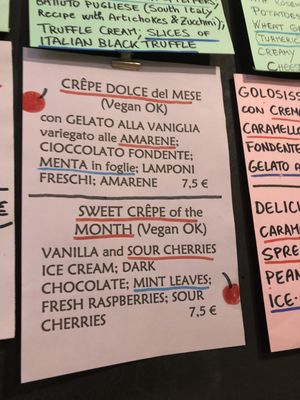 BATTUTO PUGLIESE (SOUTH ITALY
RECIPE WITH ARTICHOKES & ZUCCHINI);
TRUFFLE CREAM; SLICES OF
ITALIAN BLACK TRUFFLE
POTATOE
WHEAT G
(TURMERIC
CREAMY
CHEES
CRÊPE DOLCE del MESE
(Vegan OK)
con GELATO ALLA VANIGLIA
variegato alle AMARENE;
CIOCCOLATO FONDENTE;
MENTA in foglie; LAMPONI
FRESCHI; AMARENE 7,5 €
SWEET CRÊPE of the
MONTH (Vegan OK)
VANILLA and SOUR CHERRIES
ICE CREAM; DARK
CHOCOLATE; MINT LEAVES;
FRESH RASPBERRIES; SOUR
CHERRIES 7,5 €
GOLOSISS
CON CREM
CARAMELLO
FONDENTE
GELATO A
DELIC
CARAM
SPRE
PEAN
ICE